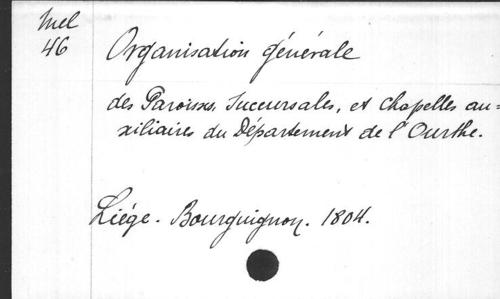 Mel
46
Organisation générale
des Paroisses, Succursales, et Chapelles au=
xiliaires du Département de l'Ourthe.
Liége. Bourguignon. 1804.